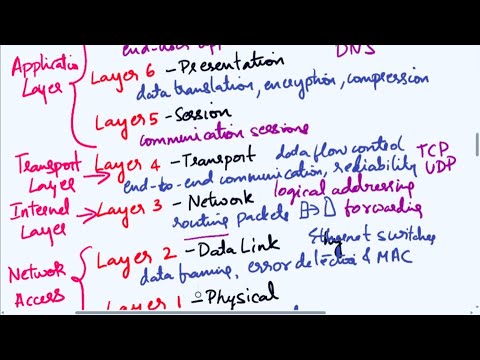 end-user app
DNS
Application Layer
Layer 6 - Presentation
data translation, encryption, compression
Layer 5 - Session
communication sessions
Transport Layer
Layer 4 - Transport
data flow control
TCP
end-to-end communication, reliability
UDP
Internet Layer
Layer 3 - Network
logical addressing
routing packets
forwarding
Layer 2 - Data Link
switches
data framing, error detection & MAC
Network Access
Layer 1 - Physical